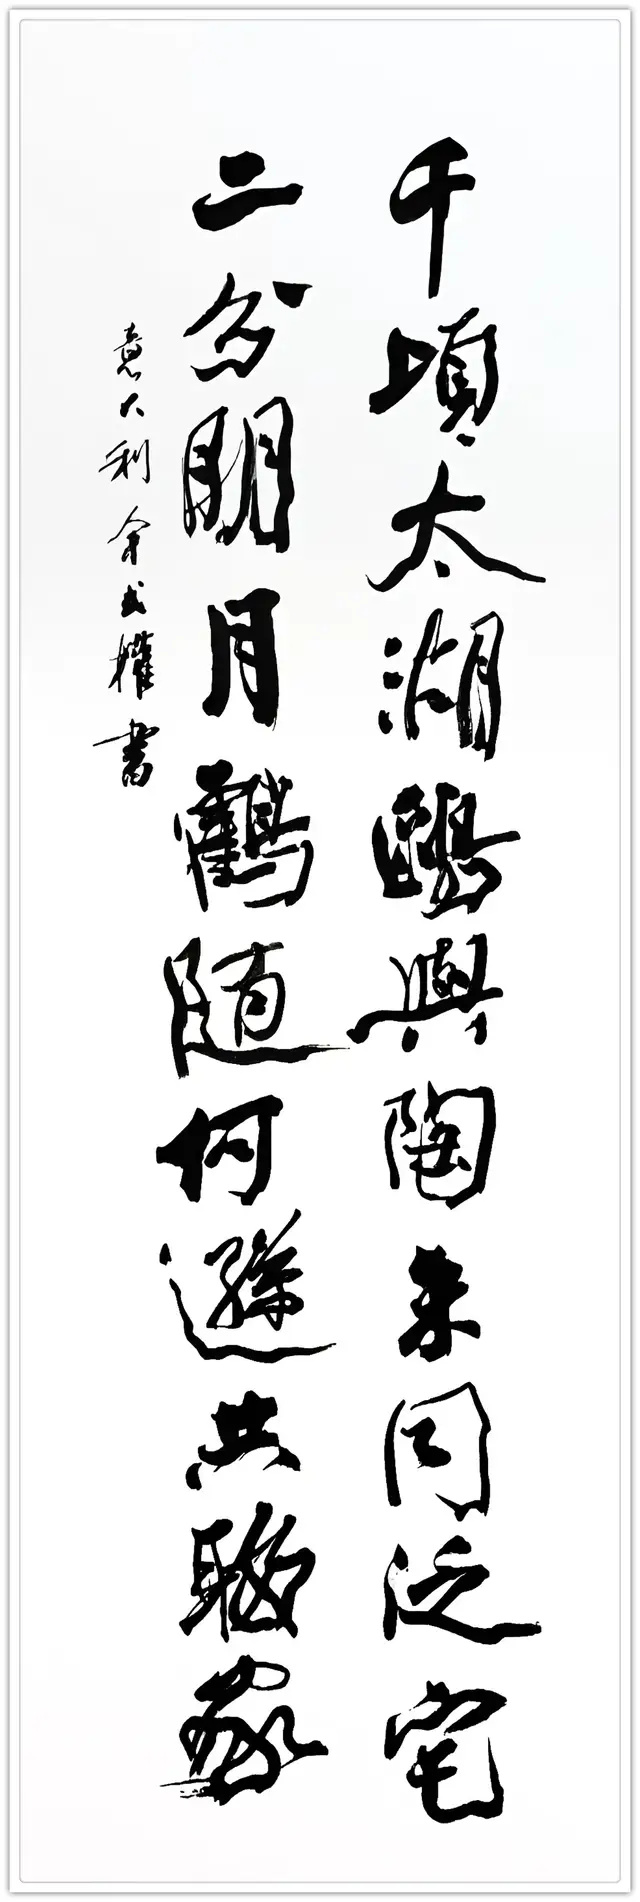 千頃太湖鷗與陶朱同泛宅
二分明月鶴随何遜共家
意大利余權書